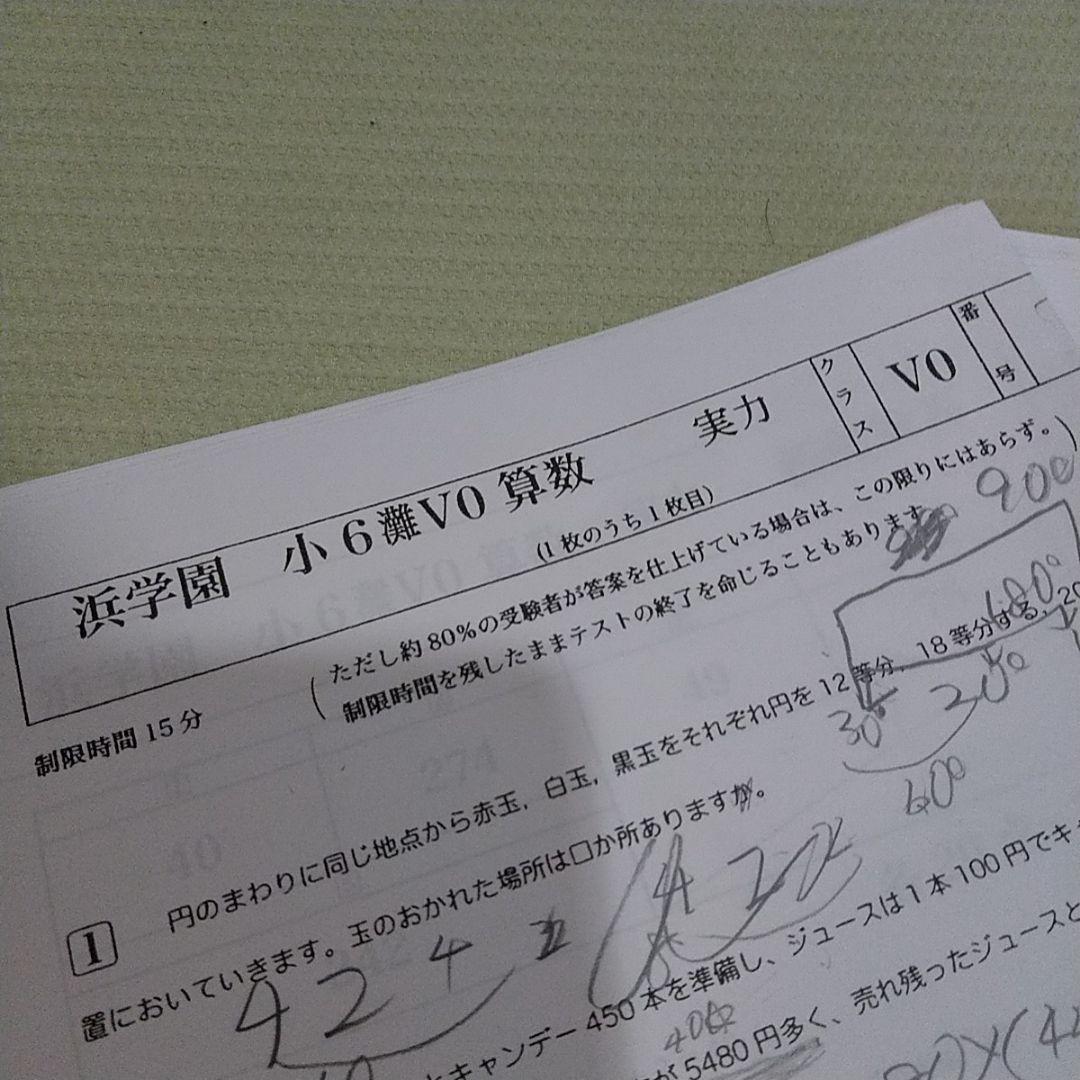 浜学園 小6灘V0 算数 実力
クラス V0 番号
(1枚のうち1枚目)
制限時間15分
(ただし約80%の受験者が答案を仕上げている場合は、この限りにはあらず。
制限時間を残したままテストの終了を命じることもあります)
900
600°
1 円のまわりに同じ地点から赤玉，白玉，黒玉をそれぞれ円を12等分，18等分する，20
置においていきます。玉のおかれた場所は口か所ありますか。
30° 20°
60°
4 2 4
キャンデー450本を準備し、ジュースは1本100円でキ
405
が5480円多く、売れ残ったジュースと